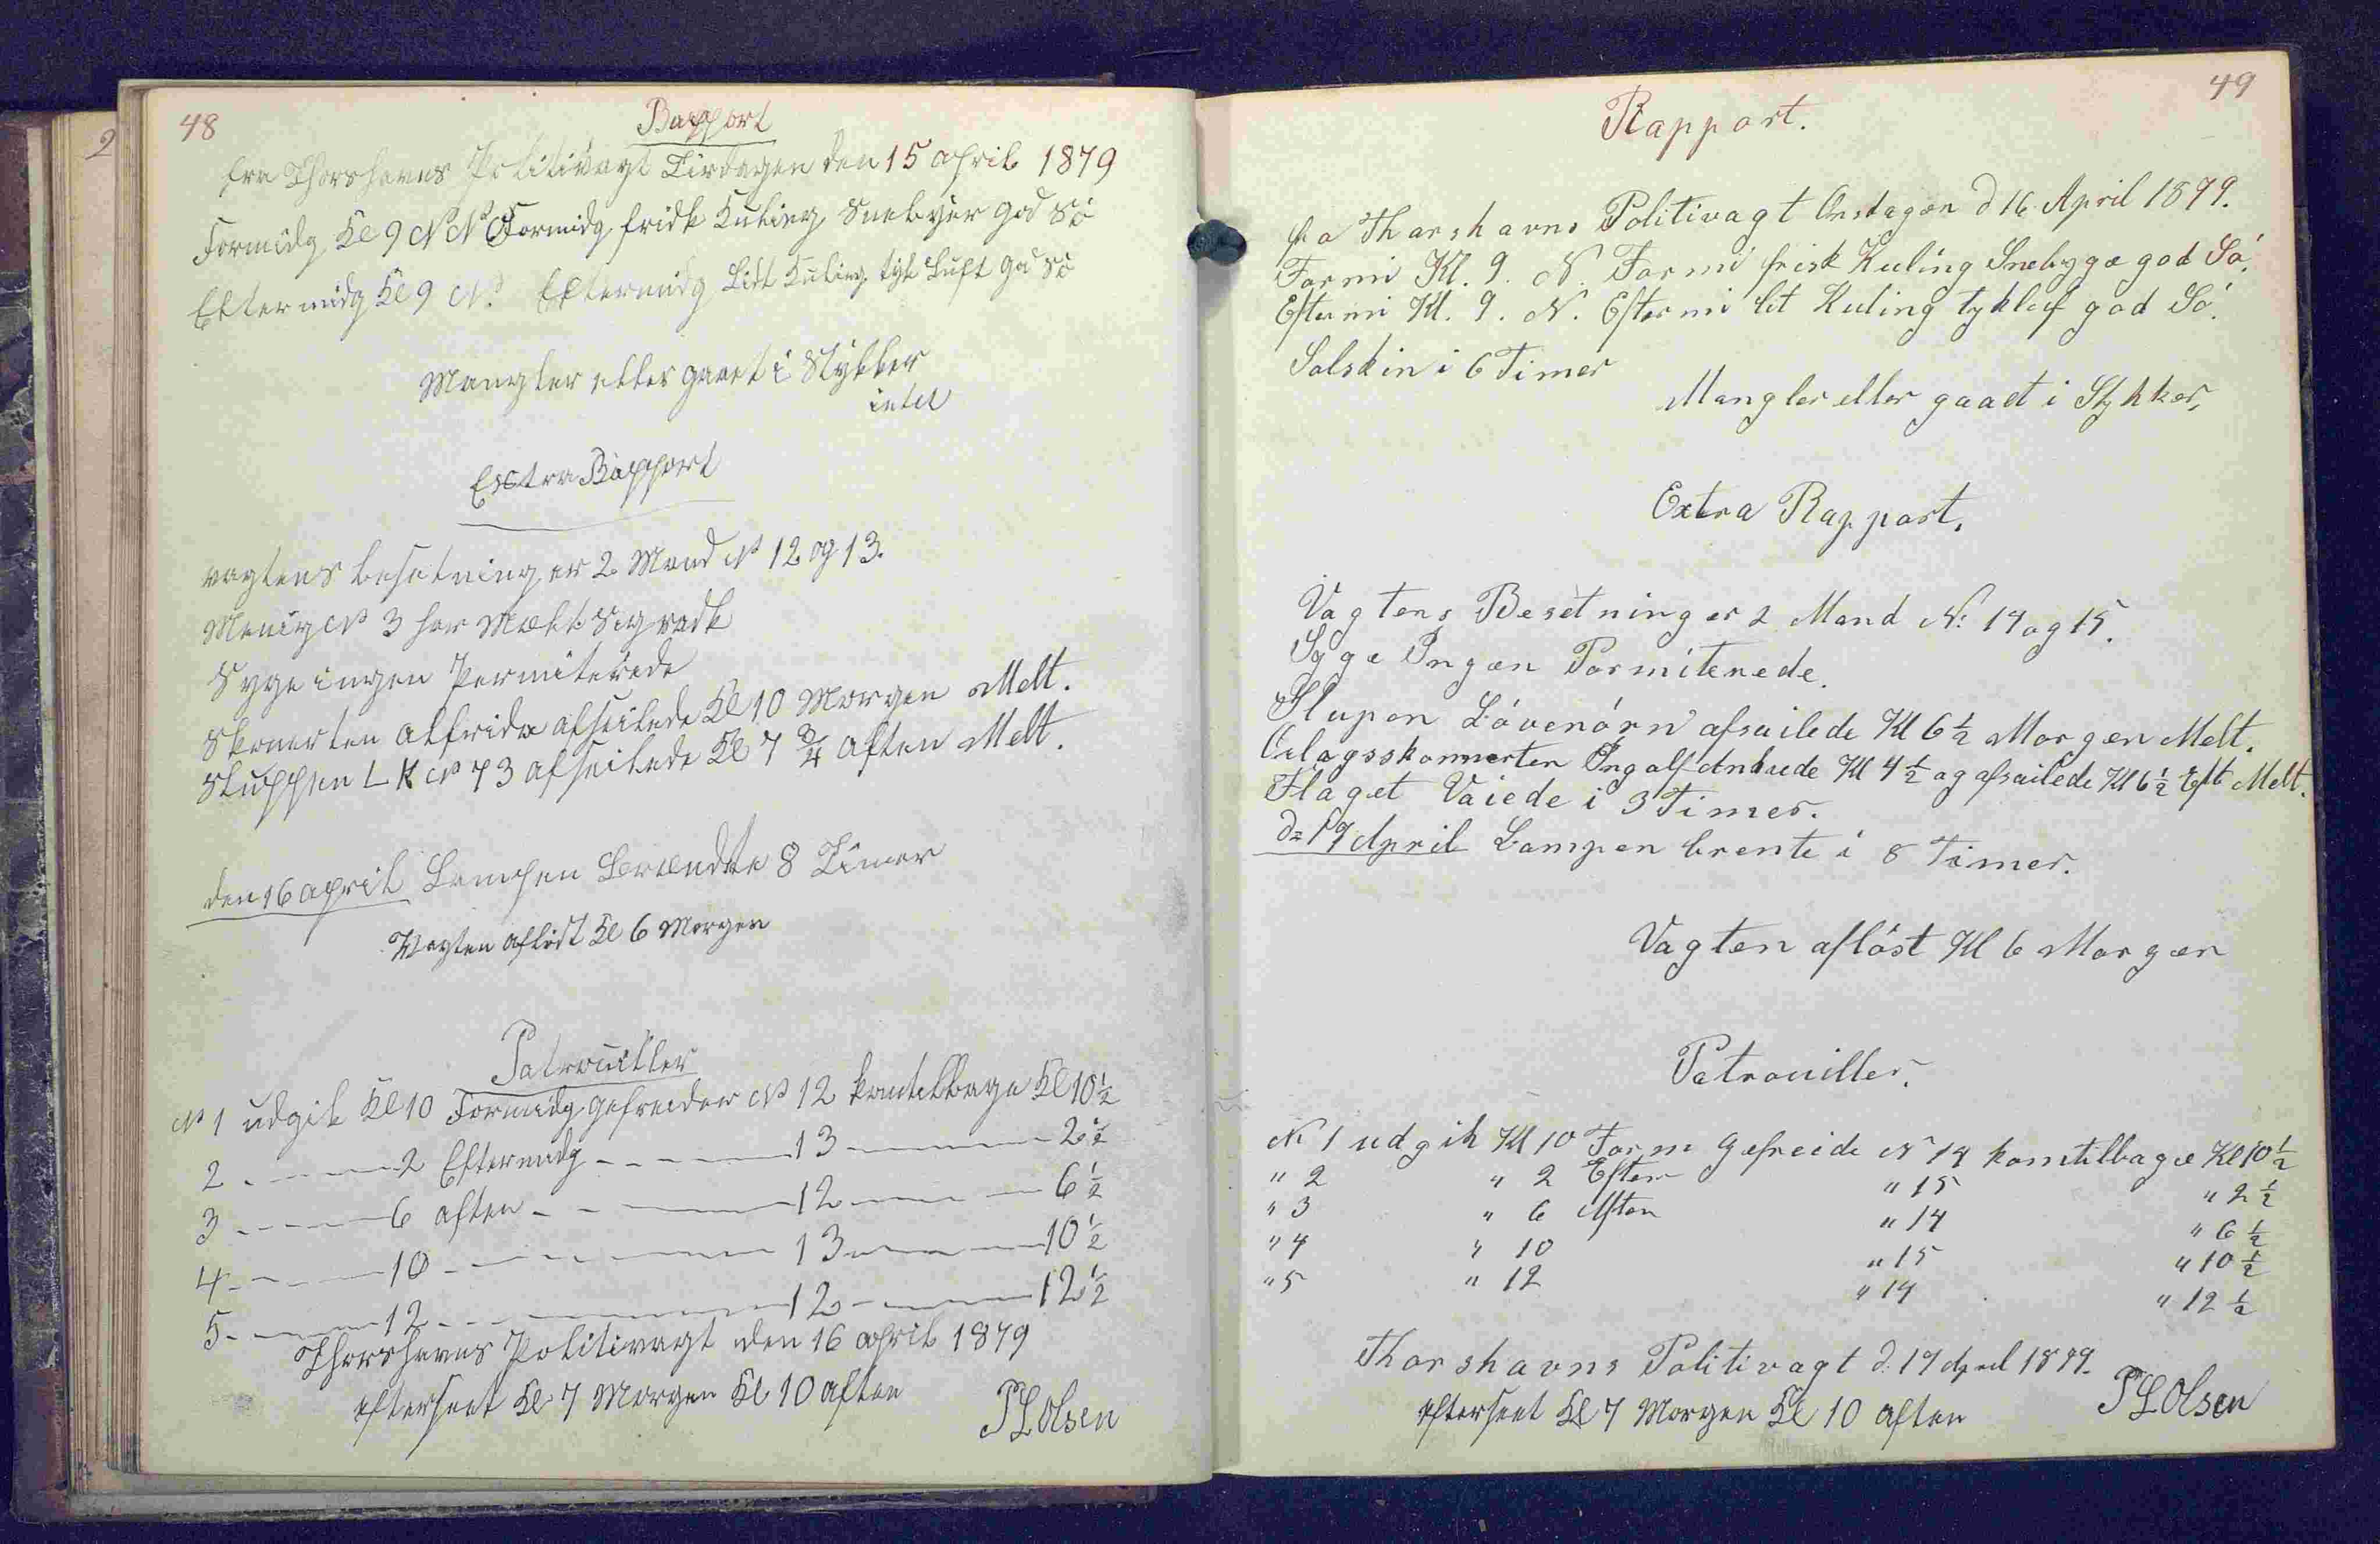 48
Rapport
fra Thorshavns Politivagt Tirdagen den 15 april 1879
Formidg Kl 9 N N Formidg fridk Kuling Snebyer god Sö
Eftermidg Kl 9 N. Eftermidg Lidt Kuling tyk Luft god Sö
Mangler eller gaaet i Stykker
intel
Extra Rapport
vagtens besetning er 2 Mand N 12 og 13.
Menig N 3 har Mælt Sig radk
Syge ingen Permiterede
Skonerten alfrida afseilede Kl 10 Morgen Melt.
Sluppen L K N 73 afseilede Kl 7 3/4 aften Melt.
den 16 april Lampen Brændte 8 Timer
Vagten aflöst Kl 6 Morgen
Patrouiller
N 1 udgik Kl 10 Formidg gefreider N 12 kom tilbage Kl 10 1/2
2 - - - 2 Eftermidg - - - 13 - - - 2 1/2
3 - - - 6 aften - - - 12 - - - 6 1/2
4 - - - 10 - - - 13 - - - 10 1/2
5 - - - 12 - - - 12 - - - 12 1/2
Thorshavns Politivagt den 16 april 1879
efterseet Kl 7 Morgen Kl 10 aften
P L Olsen
49
Rapport.
fra Tharshavns Politivagt Onsdagen d 16 April 1879.
Formi Kl. 9. N. Formi frisk Kuling Snebyge god Sö.
Eftermi Kl. 9. N. Eftermi lit Kuling tykluf god Sö.
Solskin i 6 Timer
Mangler eller gaaet i Stykker,
Extra Rapport.
Vagtens Besetning er 2 Mand N: 14 og 15.
Syge Ingen Permiterede.
Slupen Lövenörn afsailede Kl 6 1/2 Morgen Melt.
Orlogsskonnerten Ingolf Ankrede Kl 4 1/2 og afsailede Kl 6 1/2 Eft Melt.
Flaget Vaiede i 3 Timer.
d= 17 April Lampen brente i 8 Timer.
Vagten aflöst Kl 6 Morgen
Patrouiller.
N 1 udgik Kl 10 Form Gefreide N 14 kom tilbage Kl 10 1/2
" 2 " 2 Efter " 15 " 2 1/2
" 3 " 6 Aften " 14 " 6 1/2
" 4 " 10 " 15 " 10 1/2
" 5 " 12 " 14 " 12 1/2
Thorshavns Politivagt d. 17 April 1879.
efterseet Kl 7 Morgen Kl 10 aften
P L Olsen